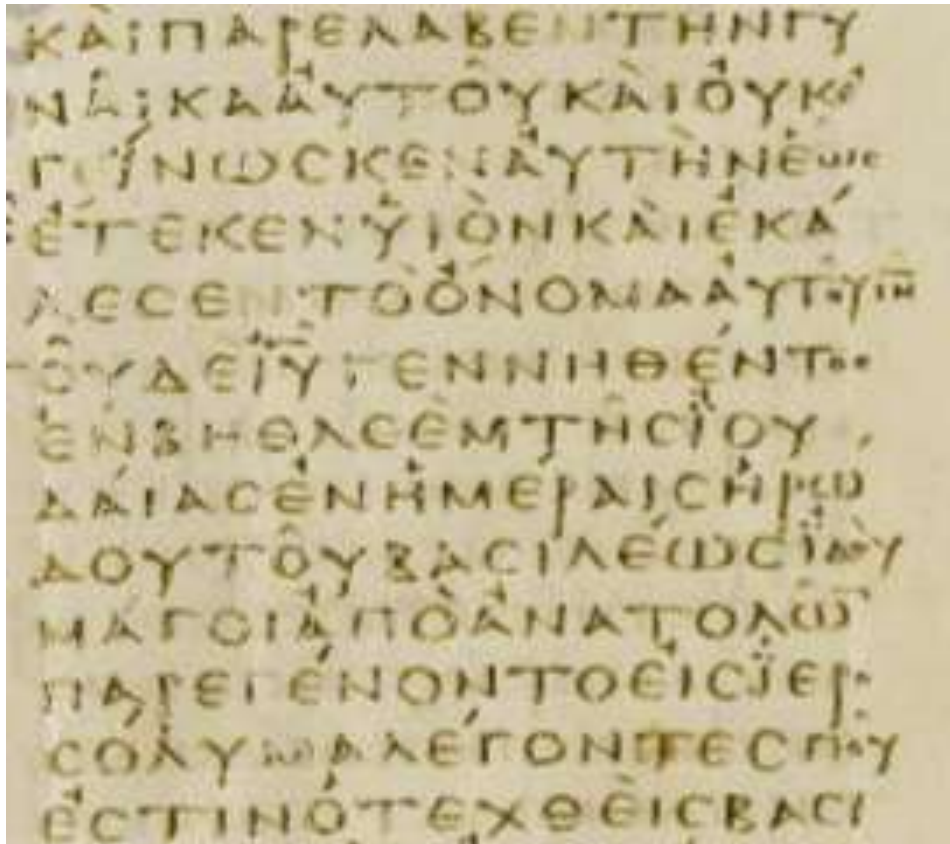 ΚΑΙΠΑΡΕΛΑΒΕΝΤΗΝΓΥ
ΝΑΙΚΑΑΥΤΟΥΚΑΙΟΥΚΕ
ΓΕΙΝΩϹΚΕΝΑΥΤΗΝΕΩϹ
ΕΤΕΚΕΝΥΙΟΝΚΑΙΕΚΑ
ΛΕϹΕΝΤΟΟΝΟΜΑΑΥΤΟΥΙ̅Ν̅
ΤΟΥΔΕΙ̅Υ̅ΓΕΝΝΗΘΕΝΤΟϹ
ΕΝΒΗΘΛΕΕΜΤΗϹΪΟΥ
ΔΑΙΑϹΕΝΗΜΕΡΑΙϹΗΡΩ
ΔΟΥΤΟΥΒΑϹΙΛΕΩϹΪΔΟΥ
ΜΑΓΟΙΑΠΟΑΝΑΤΟΛΩ̅
ΠΑΡΕΓΕΝΟΝΤΟΕΙϹΪΕΡΟ
ϹΟΛΥΜΑΛΕΓΟΝΤΕϹΠΟΥ
ΕϹΤΙΝΟΤΕΧΘΕΙϹΒΑϹΙ